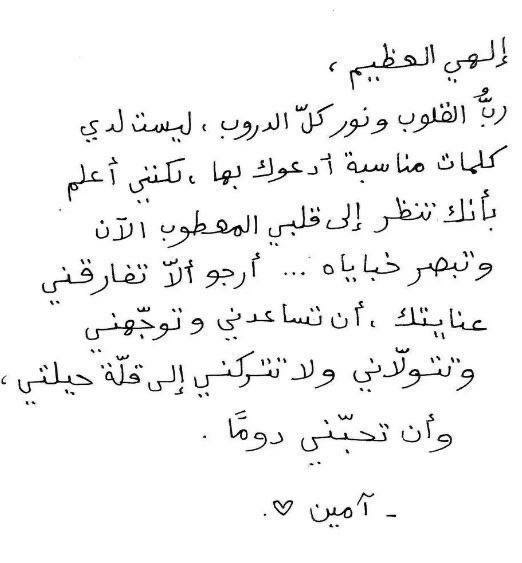 إلهي العظيم ،
ربُّ القلوب ونور كلّ الدروب ، ليست لدي
كلمات مناسبة أدعوك بها ، لكنني أعلم
بأنك تنظر إلى قلبي المعطوب الآن
وتبصر خباياه ... أرجو ألاّ تفارقني
عنايتك ، أن تساعدني وتوجّهني
وتتولّاني ولا تتركني إلى قلّة حيلتي ،
وأن تحبّني دومًا .
- آمين ♡.